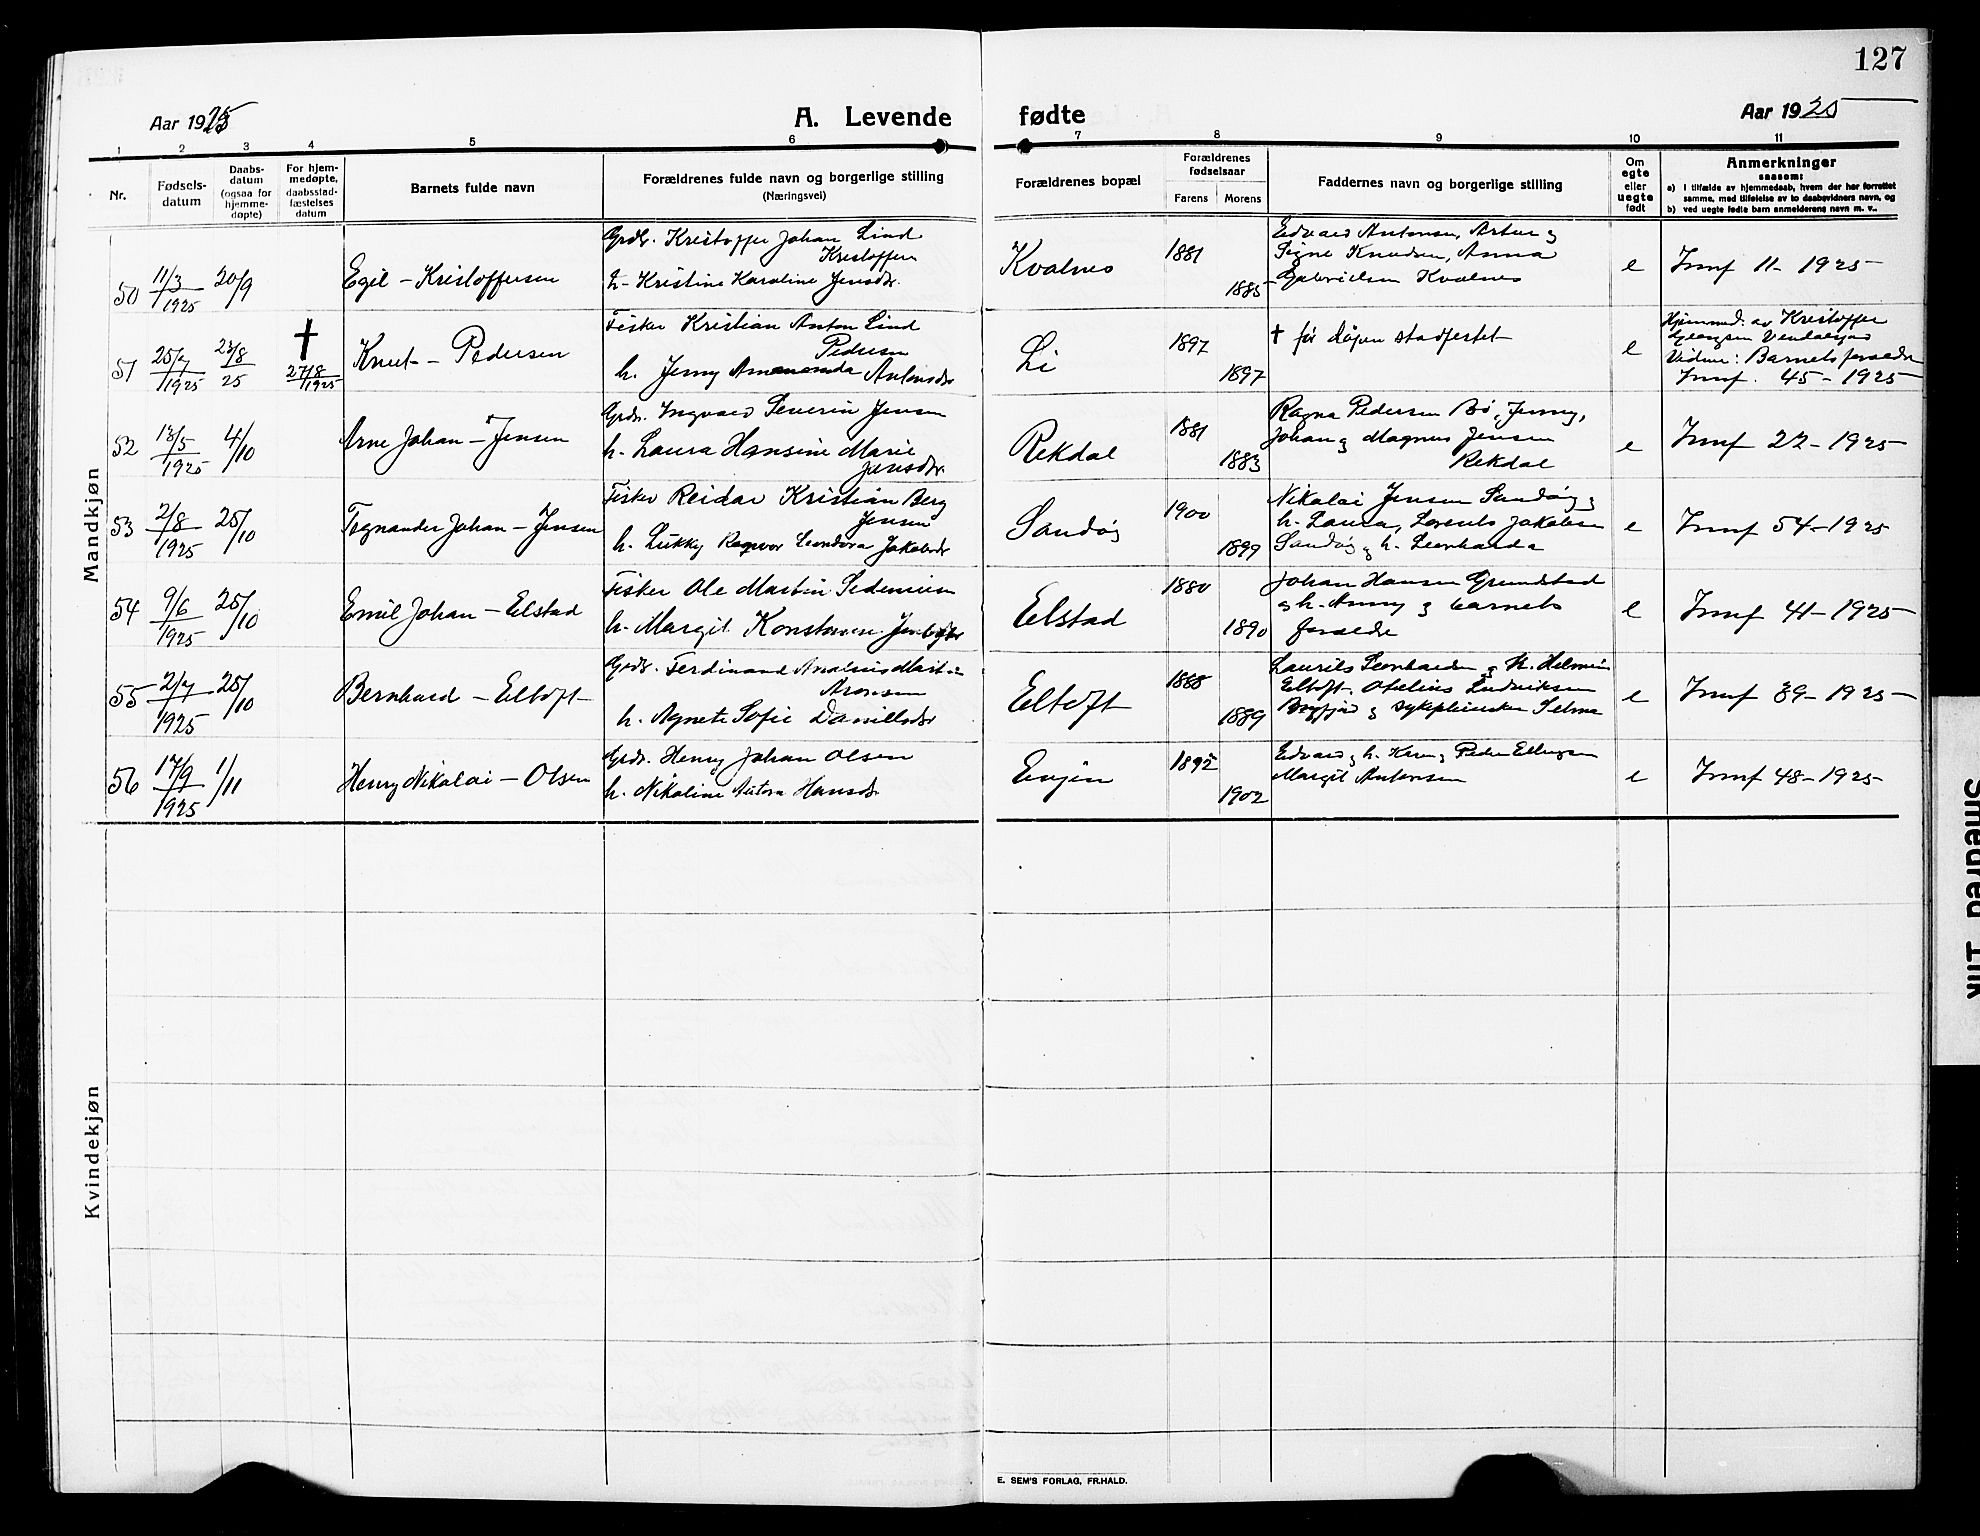 127
Aar 1925
A. Levende fødte
Aar 1925
1 2 3 4 5 6 7 8 9 10 11
Nr.
Fødsels-
datum
Daabs-
datum
(ogsaa for
hjemme-
døpte)
For hjem-
medøpte,
daabsstad-
fæstelses
datum
Barnets fulde navn
Forældrenes fulde navn og borgerlige stilling
(Næringsvei)
Forældrenes bopæl
Forældrenes
fødselsaar
Farens Morens
Faddernes navn og borgerlige stilling
Om
egte
eller
uegte
født
Anmerkninger
saasom:
a) i tilfælde av hjemmedaab, hvem der har forrettet
samme, med tilføielse av to daabsvidners navn, og
b) ved uegte fødte barn anmelderens navn m. v..
Mandkjøn
50 11/3 1925 20/9
Egil - Kristoffersen
Grdbr. Kristoffer Johan Lind
Kristoffersen
h. Kristine Karoline Jensdtr.
Kvalnes
1881
1885
Edvard Antonsen, Artur og
Signe Knudsen, Anna
Gabrielsen Kvalnes
e
Jmnf 11 - 1925
51 25/7 1925 23/8 25 † 27/8 1925
Knut - Pedersen
Fisker Kristian Anton Lind
Pedersen
h. Jenny Amanda Antonsdtr
Li
1897
1897
† før dåpen stadfestet
e
Hjemmed. av Kristoffer
Vidner: Barnets forældre
Jmnf. 45 - 1925
52 13/5 1925 4/10
Arne Johan - Jensen
Grdbr. Ingvard Severin Jensen
h. Laura Hansine Marie
Jensdtr
Rekdal
1881
1883
Ragna Pedersen Bø, Jenny,
Johan og Magnus Jensen
Rekdal
e
Jmnf 22 - 1925
53 2/8 1925 25/10
Tognander Johan - Jensen
Fisker Reidar Kristian Berg
Jensen
h. Lukky Ragnvor Leondora Jakobsdtr
Sandøy
1900
1899
Nikolai Jensen Sandøy og
h. Laura, Lorents Jakobsen
Sandøy og h. Leonharda
e
Jmnf 54 - 1925
54 9/6 1925 25/10
Emil Johan - Elstad
Fisker Ole Martin
h. Margit
Elstad
1880
1890
Johan Hansen Grundstad
og h. Anny og barnets
forældre
e
Jmnf 41 - 1925
55 2/7 1925 25/10
Bernhard - Eltoft
Grdbr. Ferdinand Andreas Martin
Aronsen
h. Agnete Sofie Danielsdtr
Eltoft
1888
1889
Laurits Leonhardsen og h. Helmine
Eltoft. Otelius Ludviksen
og sykepleierske Selma
e
Jmnf 39 - 1925
56 17/9 1925 1/11
Henry Nikolai - Olsen
Grdbr. Henry Johan Olsen
h. Nikoline Autora Hansdtr
Evjen
1892
1902
Edvard og h. Karen, Peder Ellingsen
Margit Antonsen
e
Jmnf 48 - 1925
Kvindekjøn
E. SEM'S FORLAG, FR.HALD.